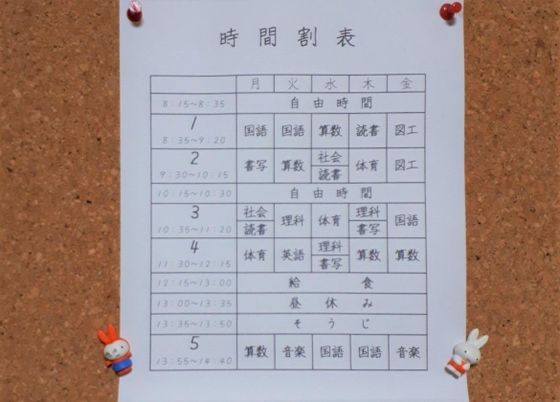 時間割表
月 火 水 木 金
8:15~8:35 自由時間
1 8:35~9:20 国語 国語 算数 読書 図工
2 9:30~10:15 書写 算数 社会 読書 体育 図工
10:15~10:30 自由時間
3 10:35~11:20 社会 読書 理科 体育 理科 書写 国語
4 11:30~12:15 体育 英語 理科 書写 算数 算数
12:15~13:00 給食
13:00~13:35 昼休み
13:35~13:50 そうじ
5 13:55~14:40 算数 音楽 国語 国語 音楽